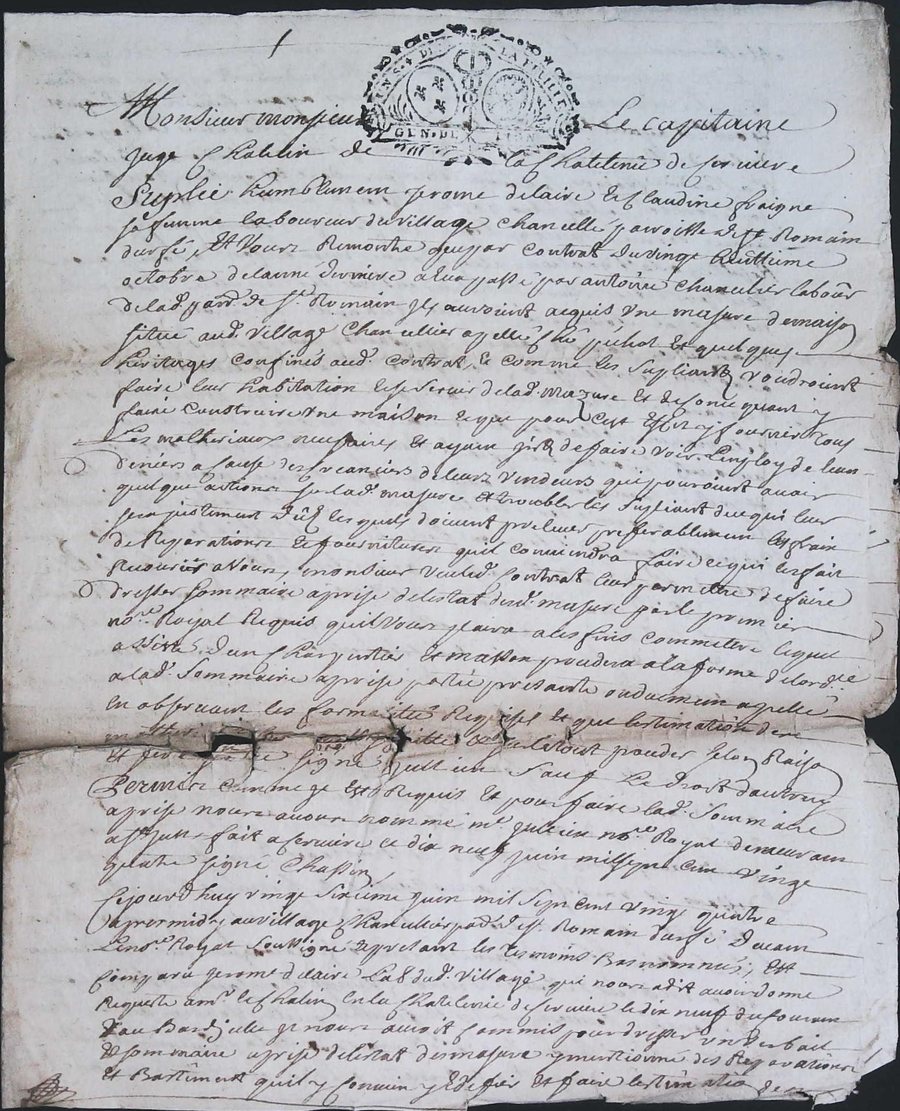 Monsieur monsieur Le capitaine
juge Chatelin de la Chatelenie de Cerviere
Suplie humblement jerome delaire et Claudine fraigne
sa femme laboureur du village Chancelle parroisse de St Romain
durfé, Et Vous Remontre que par contrat du vingt huittieme
octobre de lanné derniere a luy passé par antoine Chancelier labour
de lad. parr. de St Romain jls auroint acquis Vne masure de maison
situee aud. village Chancellier apellé chés et quelques
heritages confinés aud. contrat, et comme les supliants voudroint
faire leur habitation et se servir de lad. mazure et quant
faire construire vne maison et que pour cest effet y fournir tous
Les matteriaux necessaires et de faire voir Lemploy de leurs
deniers a cause des creanciers de leurs vendeurs qui pouroint avoir
quelque actions sur lad. masure et troubler les supliant de ce qui leur
sera justement deu lesquels doivent prelever preferablement
de Reparations et fournitures quil conviendra faire ce qui les fait
Recourir a Vous, monsieur veu led. contrat leur permettre de faire
dresser sommaire aprise de lestat de lad. masure par le premier
nore. Royal Requis quil Vous plaira a les fins commettre lequel
assisté dun charpentier et masson proceddera a la forme de lordce.
a lad. sommaire aprise partie presante ou dument apellé
En observant les formalité Requises et que lestimation
Et signé jullien Sauf Le droit dautruy
Permis comme jl Est Requis Et pour faire lad. sommaire
aprise nous avons nommé me. jullien nore. Royal demeurant
a St just fait a cerviere ce dix neuf juin mil sept cent vingt
quatre signé Chassin,
Cejourdhuy vingt sixieme juin mil sept cent vingt quatre
apres midy au village Chancelier par. de St Romain durfé devant
Le nore. Royal soussigne Et presant les tesmoins bas nommés, Est
Comparu jerome delaire Lab. dud. Village qui nous a dit avoir donné
Requeste a mr. le chatelin En la Chatelenie de Cerviere le dix neuf du courant
au bas de jcelle jl nous avoit commis pour dresser verbail
de sommaire aprise de lestat de masure y mentionné des Reparations
Et Bastiment quil y convien y Edifier Et faire lestimation de